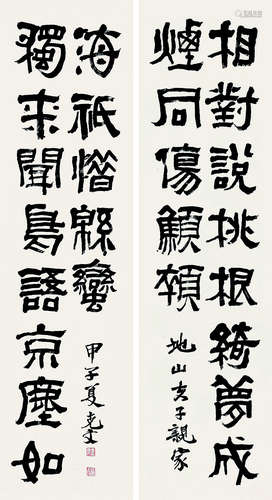 相對說桃根綺夢成
煙同傷顦顇
地山子親家
獨來聞鳥語京塵如
海祇憯緜蠻
甲子夏克文